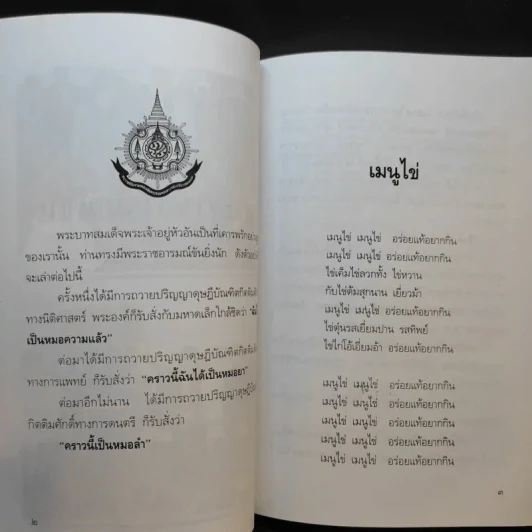 พระบาทสมเด็จพระเจ้าอยู่หัวอันเป็นที่เคารพรัก
ของเรานั้น ท่านทรงมีพระราชอารมณ์ขันยิ่งนัก
จะเล่าต่อไปนี้
ครั้งหนึ่งได้มีการถวายปริญญาดุษฎีบัณฑิตกิตติมศักดิ์
ทางนิติศาสตร์ พระองค์ก็รับสั่งกับมหาดเล็กใกล้ชิดว่า
เป็นหมอความแล้ว"
ต่อมาได้มีการถวายปริญญาดุษฎีบัณฑิตกิตติมศักดิ์
ทางการแพทย์ ก็รับสั่งว่า "คราวนี้ฉันได้เป็นหมอยา"
ต่อมาอีกไม่นาน ได้มีการถวายปริญญาดุษฎีบัณฑิต
กิตติมศักดิ์ทางการดนตรี ก็รับสั่งว่า
"คราวนี้เป็นหมอลำ"
๒
เมนูไข่
เมนูไข่ เมนูไข่ อร่อยแท้อยากกิน
เมนูไข่ เมนูไข่ อร่อยแท้อยากกิน
ไข่เค็มไข่ลวกทั้ง ไข่หวาน
กับไข่ต้มสุกนาน เยี่ยวม้า
เมนูไข่ เมนูไข่ อร่อยแท้อยากกิน
ไข่ตุ๋นรสเยี่ยมปาน รสทิพย์
ไข่ไก่โอ้เยี่ยมอ้า อร่อยแท้อยากกิน
เมนูไข่ เมนูไข่ อร่อยแท้อยากกิน
เมนูไข่ เมนูไข่ อร่อยแท้อยากกิน
เมนูไข่ เมนูไข่ อร่อยแท้อยากกิน
เมนูไข่ เมนูไข่ อร่อยแท้อยากกิน
เมนูไข่ เมนูไข่ อร่อยแท้อยากกิน
๓